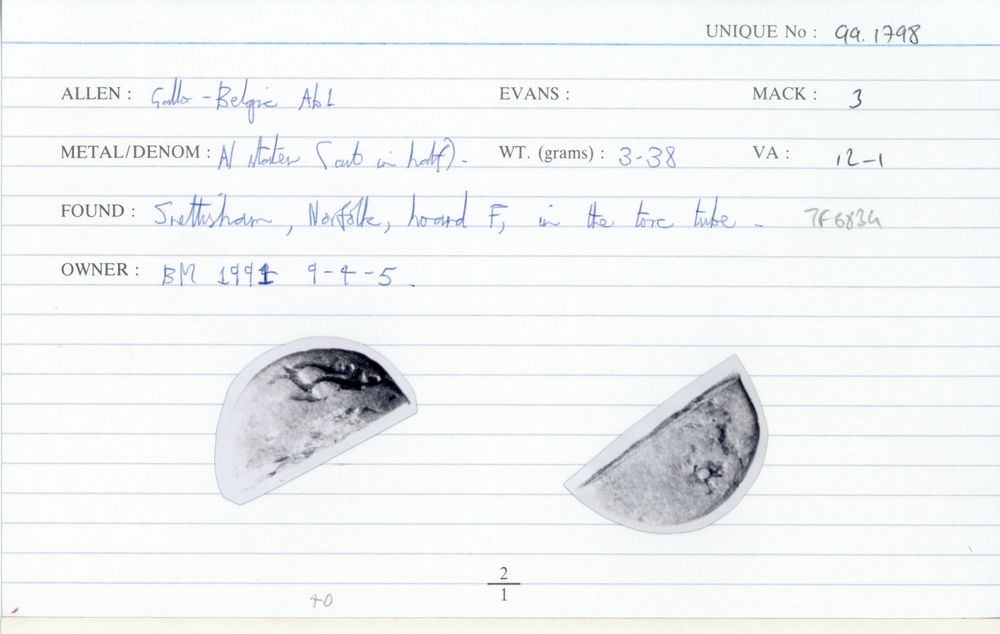 UNIQUE No : 99.1798
ALLEN : Gallo-Belgic Ab1 EVANS : MACK : 3
METAL/DENOM : AV stater (cut in half). WT. (grams) : 3-38 VA : 12-1
FOUND : Snettisham, Norfolk, hoard F, in the torc tube. TF6834
OWNER : BM 1991 9-4-5.
2
1
40